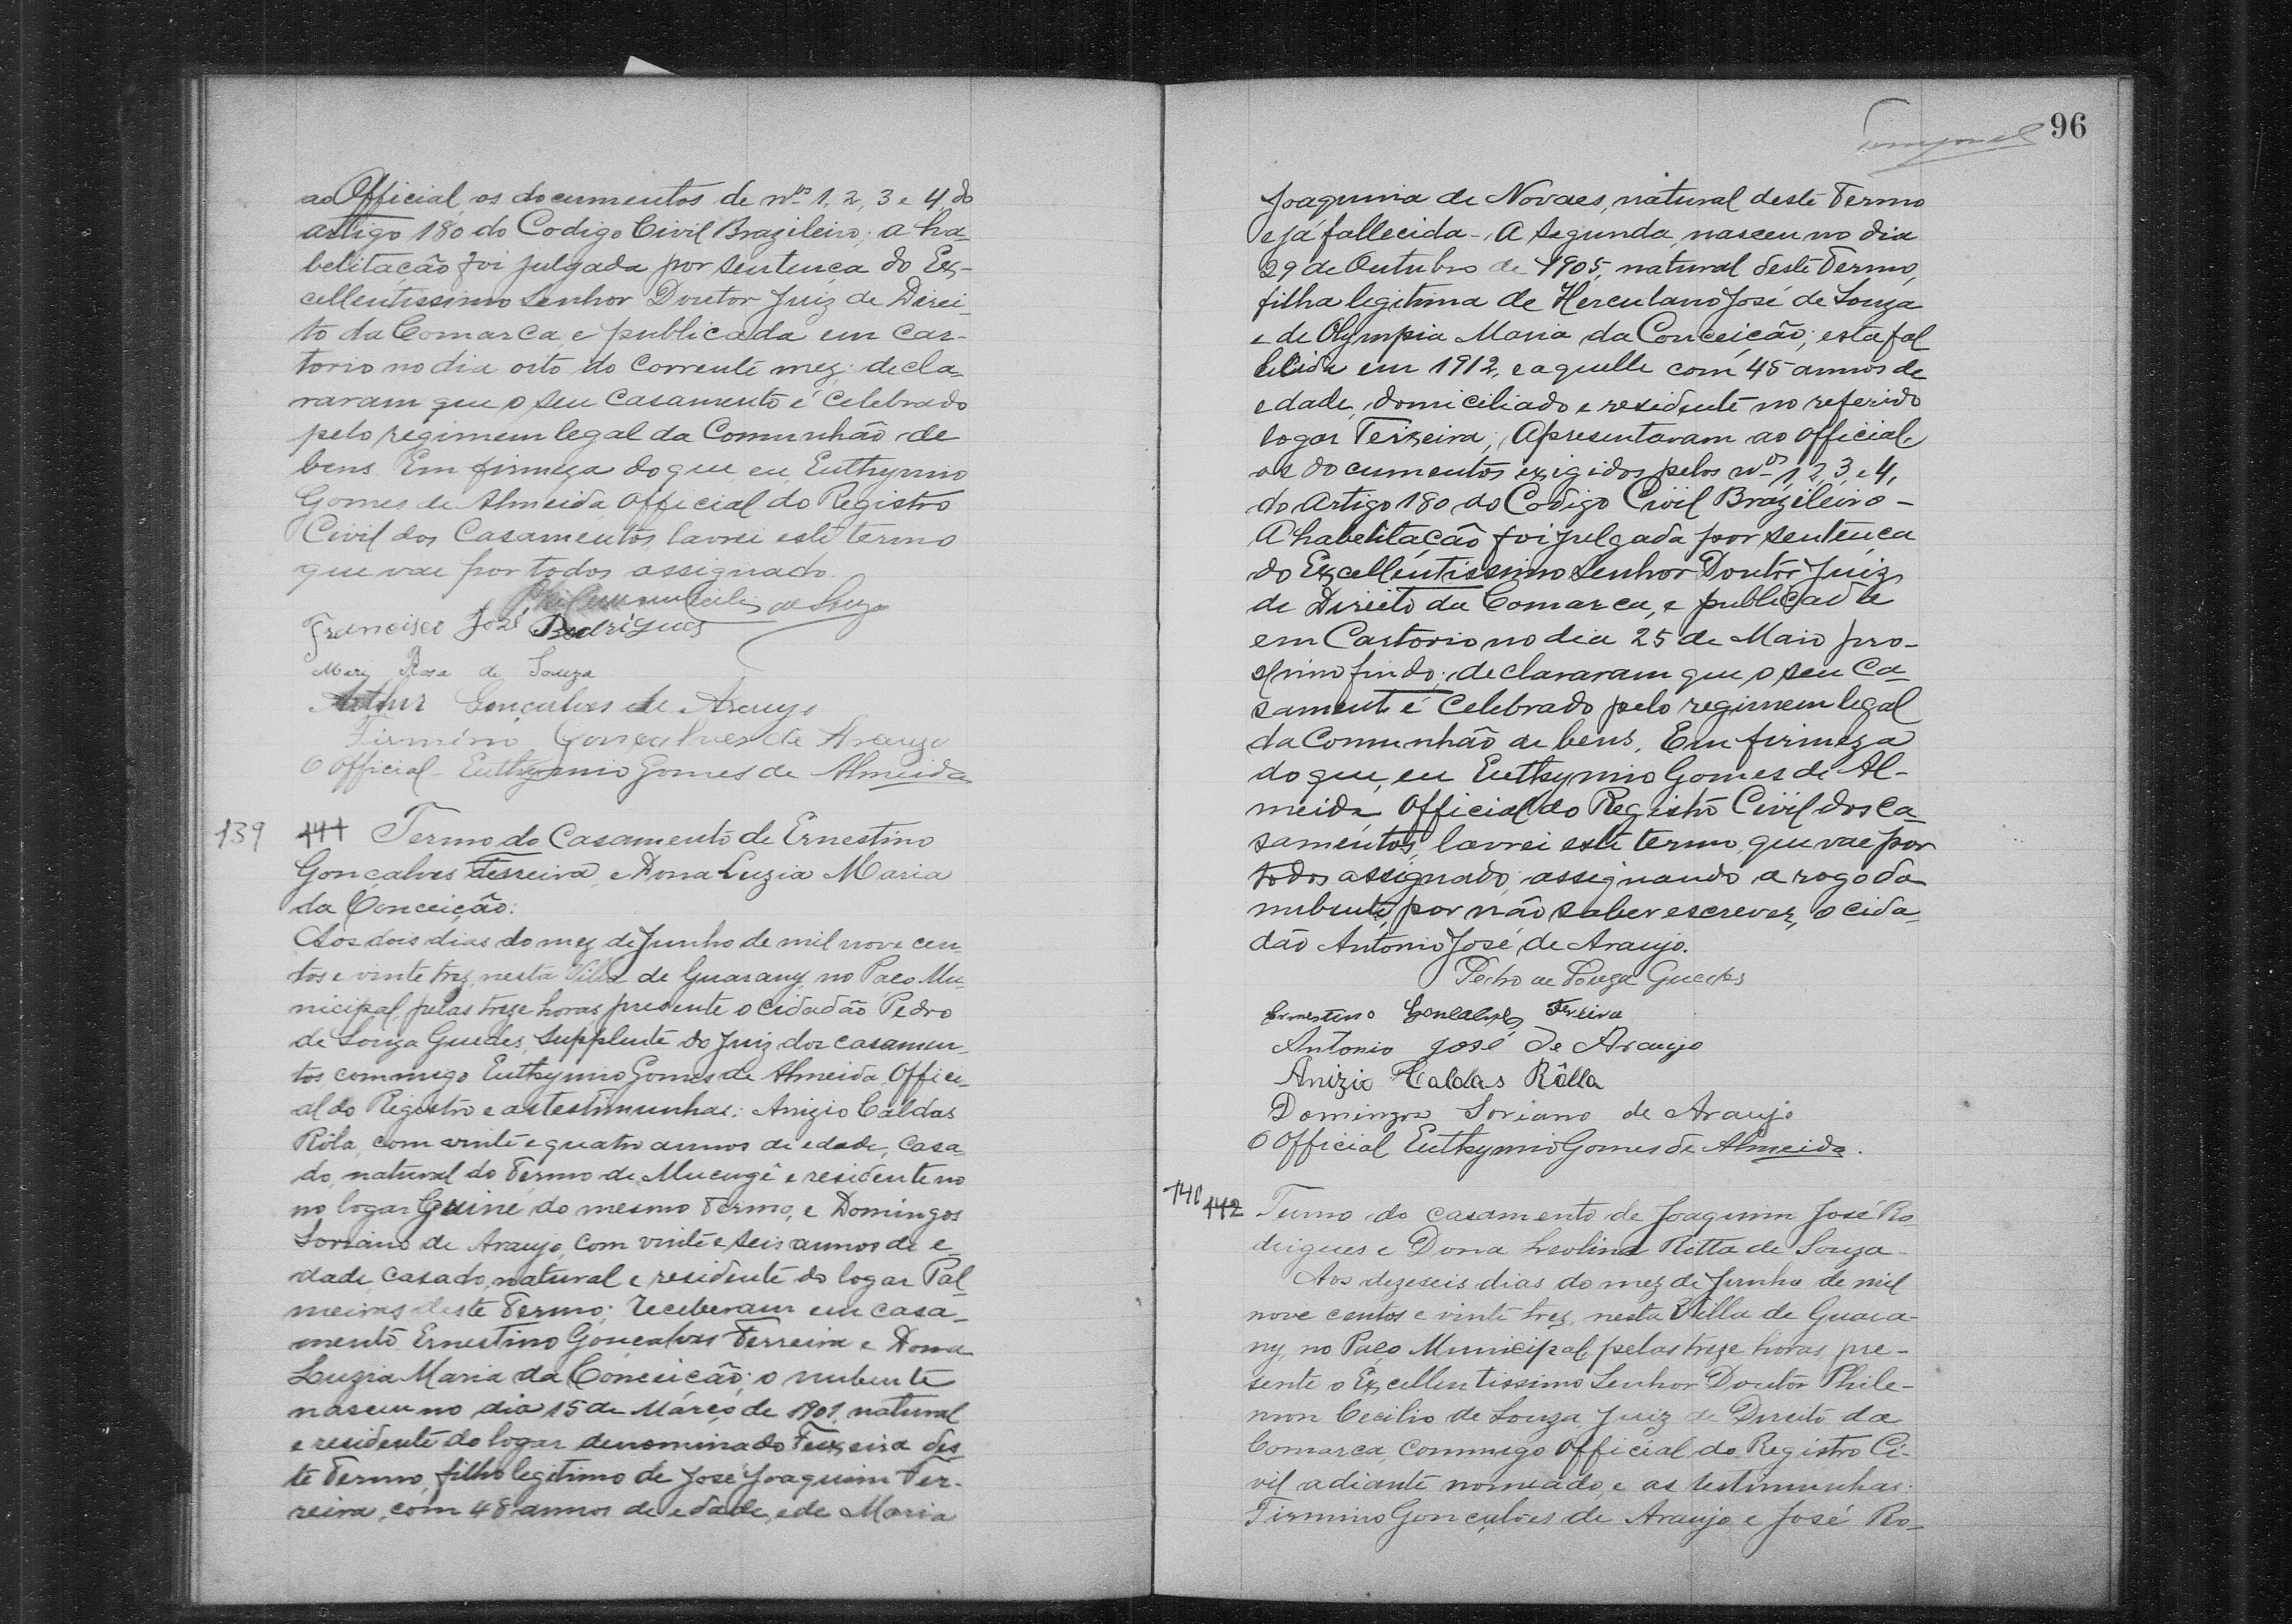 ao Official os documentos de nos 1, 2, 3 e 4, do
artigo 180 do Codigo Civil Brazileiro; a ha-
belitação foi julgada por sentença do Ex-
cellentissimo Senhor Doutor Juiz de Direi-
to da Comarca, e publicada em car-
torio no dia oito do corrente mez; decla-
raram que o seu casamento é celebrado
pelo regimem legal da Comunhão de
bens. Em firmeza do que, eu, Euthymio
Gomes de Almeida, Official do Registro
Civil dos Casamentos, lavrei este termo
que vae por todos assignado.
de Souza
Francisco José Rodrigues
Mary Rosa de Souza
Arthur Gonçalves de Araujo
Firmino Gonçalves de Araujo
O Official - Euthymio Gomes de Almeida
139 141 Termo do Casamento de Ernestino
Gonçalves Ferreira, e Dona Luzia Maria
da Conceição:
Aos dois dias do mez de Junho de mil nove cen-
tos e vinte trez, nesta Villa de Guarany, no Paço Mu-
nicipal, pelas treze horas, presente o cidadão Pedro
de Souza Guedes, Supplente do Juiz dos casamen-
tos commigo Euthymio Gomes de Almeida, Offici-
al do Registro e as testimunhas: Anizio Caldas
Rôla, com vinte e quatro annos de edade, casa-
do, natural do Termo de Mucugê e residente no
no logar Guiné do mesmo Termo, e Domingos
Soriano de Araujo, com vinte e seis annos de e-
dade, casado, natural e residente do logar Pal-
meiras deste Termo; receberam em casa-
mento Ernestino Gonçalves Ferreira e Dona
Luzia Maria da Conceição; o nubente
nasceu no dia 15 de Março de 1901, natural
e residente do logar denominado Teixeira des-
te Termo, filho legitimo de José Joaquim Fer-
reira, com 48 annos de edade, e de Maria
96
Joaquina de Novaes, natural deste Termo
e já fallecida - A segunda, nasceu no dia
29 de Outubro de 1905, natural deste Termo,
filha legitima de Herculano José de Souza
e de Olympia Maria da Conceição; esta fal
lecida em 1912, e aquelle com 45 annos de
edade, domiciliado e residente no referido
logar Teixeira; Apresentaram ao official,
os documentos exigidos pelos nos 1, 2, 3, e 4,
do artigo 180 do Codigo Civil Brazileiro -
A habelitação foi julgada por sentença
do Excellentissimo Senhor Doutor Juiz
de Direito da Comarca, e publicada
em Cartorio no dia 25 de Maio pro-
ximo findo; declararam que o seu ca-
samento é celebrado pelo regimem legal
da Comunhão de bens. Em firmeza
do que, eu Euthymio Gomes de Al-
meida Official do Registro Civil dos Ca-
samentos, lavrei este termo, que vae por
todos assignado, assignando a rogo da
nubente, por não saber escrever, o cida-
dão Antonio José de Araujo.
Pedro de Souza Guedes
Ernestino Goncalves Ferreira
Antonio José de Araujo
Anizio Caldas Rôlla
Domingos Soriano de Araujo
O Official Euthymio Gomes de Almeida.
140 142 Termo do casamento de Joaquim José Ro
drigues e Dona Leolina Ritta de Souza -
Aos dezeseis dias do mez de Junho de mil
nove centos e vinte trez, nesta Villa de Guara-
ny, no Paço Municipal, pelas treze horas, pre-
sente o Excellentissimo Senhor Doutor Phile-
mon Cecilio de Souza, Juiz de Direito da
Comarca, commigo Official do Registro Ci-
vil adiante nomeado, e as testimunhas:
Firmino Gonçalves de Araujo e José Ro-